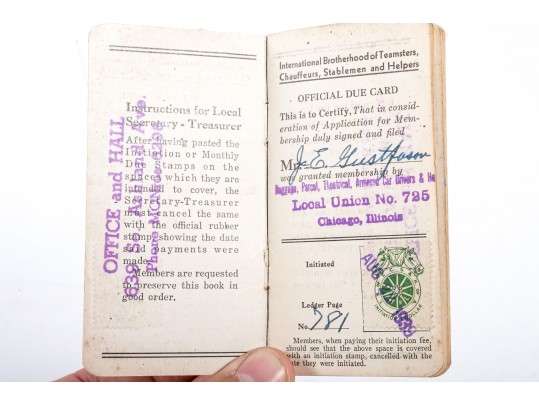 Instructions for Local
Secretary - Treasurer
After having pasted the
Initiation or Monthly
Due Stamps on the
spaces which they are
intended to cover, the
Secretary-Treasurer
must cancel the same
with the official rubber
stamp, showing the date
said payments were
made.
Members are requested
to preserve this book in
good order.
OFFICE and HALL
639 So. Ashland Ave.
Phone
International Brotherhood of Teamsters,
Chauffeurs, Stablemen and Helpers
OFFICIAL DUE CARD
This is to Certify, That in consid-
eration of Application for Mem-
bership duly signed and filed
Mr. E. Gustafson
was granted membership by
Baggage, Parcel, Theatrical, Armored Car Drivers & He
Local Union No. 725
Chicago, Illinois
Initiated
AUG 1939
INITIATION
DOLLAR
Ledger Page
No. 781
Members, when paying their initiation fee,
should see that the above space is covered
with an initiation stamp, cancelled with the
date they were initiated.